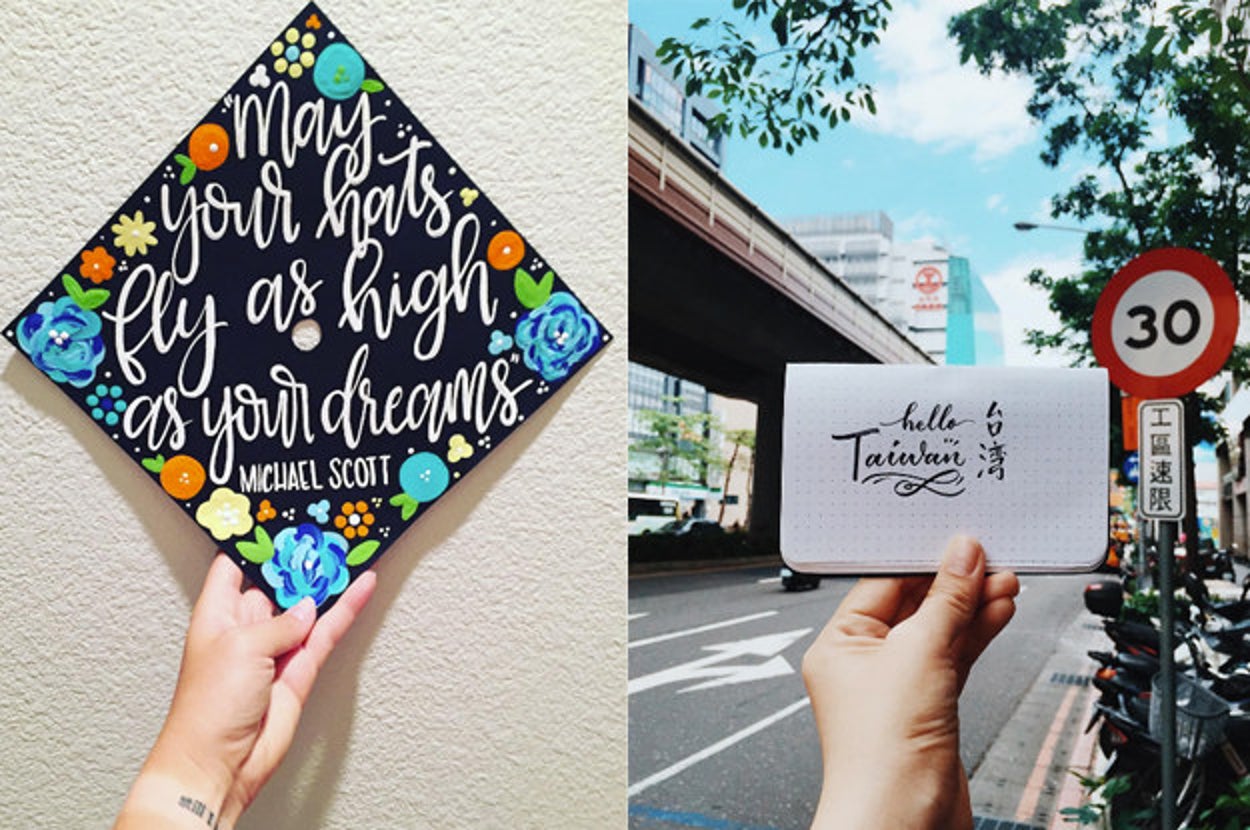 "May
your hats
fly as high
as your dreams"
MICHAEL SCOTT
hello
Taiwan
台湾
30
工區速限